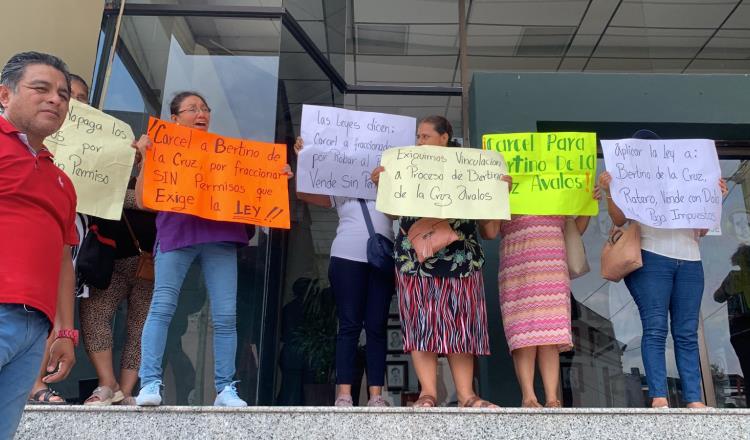 paga los
Permiso
¡Carcel a Bertino de
la Cruz, por fraccionar
SIN Permisos que
Exige la LEY!!
Las Leyes dicen:
Carcel a fraccionador
por Robar al
Vende Sin
EXigimos Vinculación
a Proceso de Bertino
de la Cruz Avalos
¡Carcel PARA
Bertino De la
Cruz Avalos!
Aplicar la Ley a:
Bertino de la Cruz,
Ratero, Vende con Dolo
No Paga Impuestos